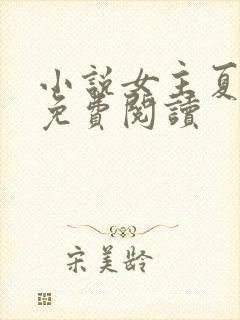 小說女主夏
免費閱讀
宋美齡